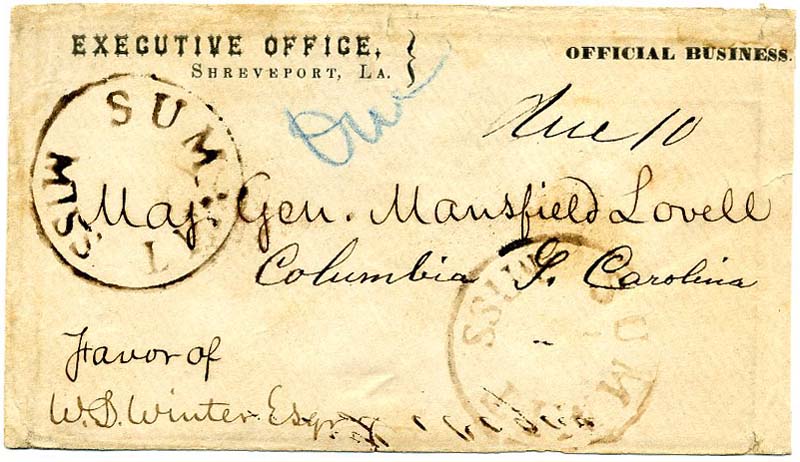 EXECUTIVE OFFICE,
SHREVEPORT, LA.
OFFICIAL BUSINESS.
Due
Due 10
SUMMIT
MISS
Maj. Gen. Mansfield Lovell
Columbia S. Carolina
Favor of
W. S. Winter Esqr
MISS